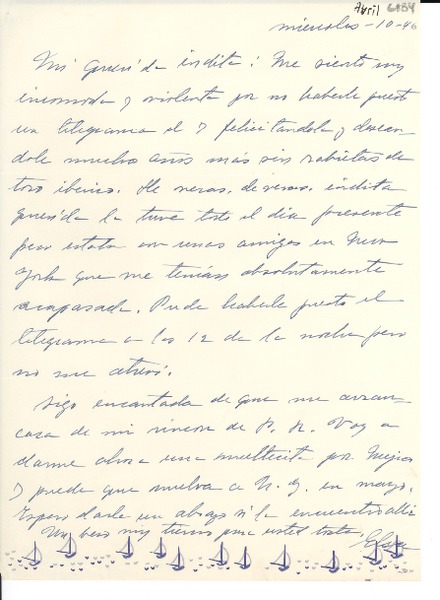 Avril 6184
miércoles - 10 - 46
Mi querida indita: Me siento muy
incomoda y violenta por no haberle puesto
un telegrama el 7 felicitandola y desean
dole muchos años más sin rabietas de
toro iberico. De veras, de veras, indita
querida la tuve todo el dia presente
pero estaba con unas amigas en New
York que me tenían absolutamente
acaparada. Pude haberle puesto el
telegrama a las 12 de la noche pero
no me atreví.
Sigo encantada de que me arran-
casa de mi rincon de P. R. Voy a
darme ahora una vueltecita por Mejico
y puede que vuelva a N. Y. en mayo.
Espero darle un abrazo si la encuentro allí
Un beso muy tierno para usted toda.